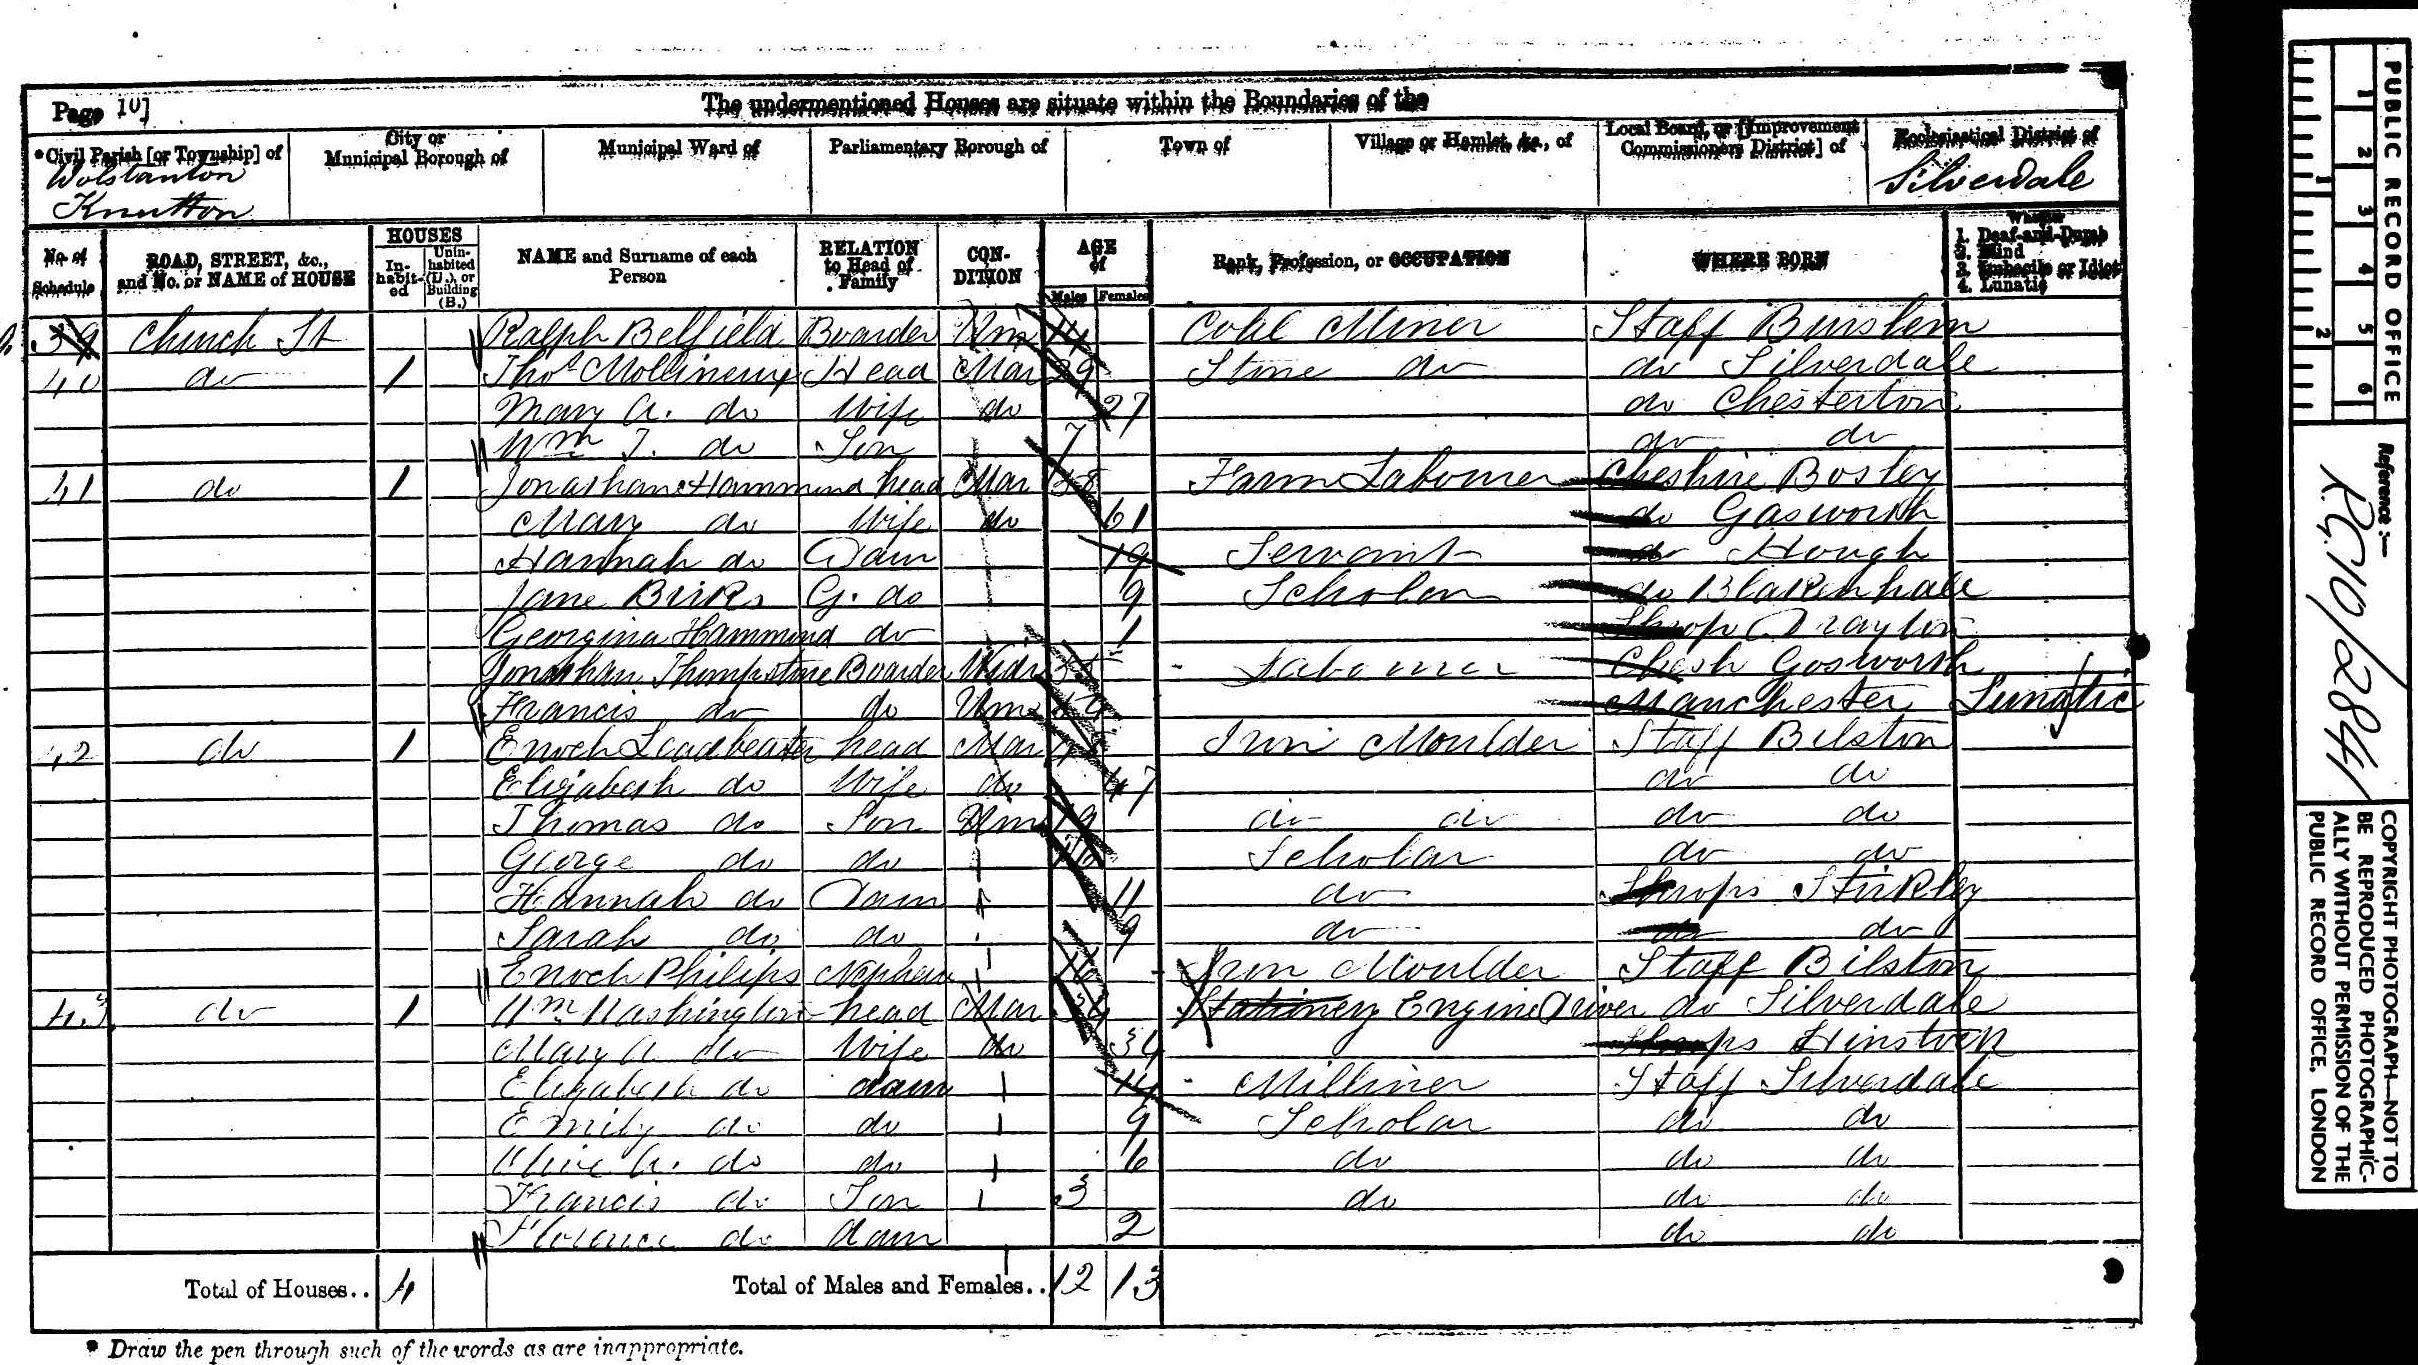 Page 10]
The undermentioned Houses are situate within the Boundaries of the
*Civil Parish [or Township] of
Wolstanton
Knutton
City or
Municipal Borough of
Municipal Ward of
Parliamentary Borough of
Town of
Village or Hamlet, &c., of
Local Board, or [Improvement
Commissioners District] of
Ecclesiastical District of
Silverdale
No. of
Schedule
ROAD, STREET, &c.,
and No. or NAME of HOUSE
HOUSES
In-
habit-
ed
Unin-
habited
(U.), or
Building
(B.)
NAME and Surname of each
Person
RELATION
to Head of
Family
CON-
DITION
AGE
of
Males Females
Rank, Profession, or OCCUPATION
WHERE BORN
Whether
1. Deaf-and-Dumb
2. Blind
3. Imbecile or Idiot
4. Lunatic
39 Church St Ralph Belfield Boarder Unm 14 Coal Miner Staff Burslem
40 do 1 Thos Mollineux Head Mar 29 Stone do do Silverdale
Mary A. do Wife do 27 do Chesterton
Wm T. do Son 7 do do
41 do 1 Jonathan Hammond head Mar Farm Labourer Cheshire Bosley
Mary do Wife do 61 do Gasworth
Hannah do Daur 19 Servant do Hough
Jane Birks G. do 9 Scholar do Blakenhall
Georgina Hammond do 1 Shrop Drayton
Jonathan Thompstone Boarder Widr Labourer Chesh Gosworth
Francis do do Unm Manchester Lunatic
42 do 1 Enoch Leadbeater head Mar Iron Moulder Staff Bilston
Elizabeth do Wife do 47 do do
Thomas do Son Unm 19 do do do do
George do do Scholar do do
Hannah do Daur 11 do Shrops Stirkley
Sarah do do 9 do do do
Enoch Philips Nephew 16 Iron Moulder Staff Bilston
43 do 1 Wm Washington head Mar Stationery Engine Driver do Silverdale
Mary A do Wife do 34 Shrops
Elizabeth do daur 14 Milliner Staff Silverdale
Emily do do 9 Scholar do do
A. do do 6 do do do
Francis do Son 3 do do do
Florence do daur 2 do do
Total of Houses.. 4
Total of Males and Females.. 12 13
* Draw the pen through such of the words as are inappropriate.
PUBLIC RECORD OFFICE
1 2 3 4 5 6
1 2
Reference :—
R.G. 10/2841
COPYRIGHT PHOTOGRAPH—NOT TO
BE REPRODUCED PHOTOGRAPHIC-
ALLY WITHOUT PERMISSION OF THE
PUBLIC RECORD OFFICE, LONDON